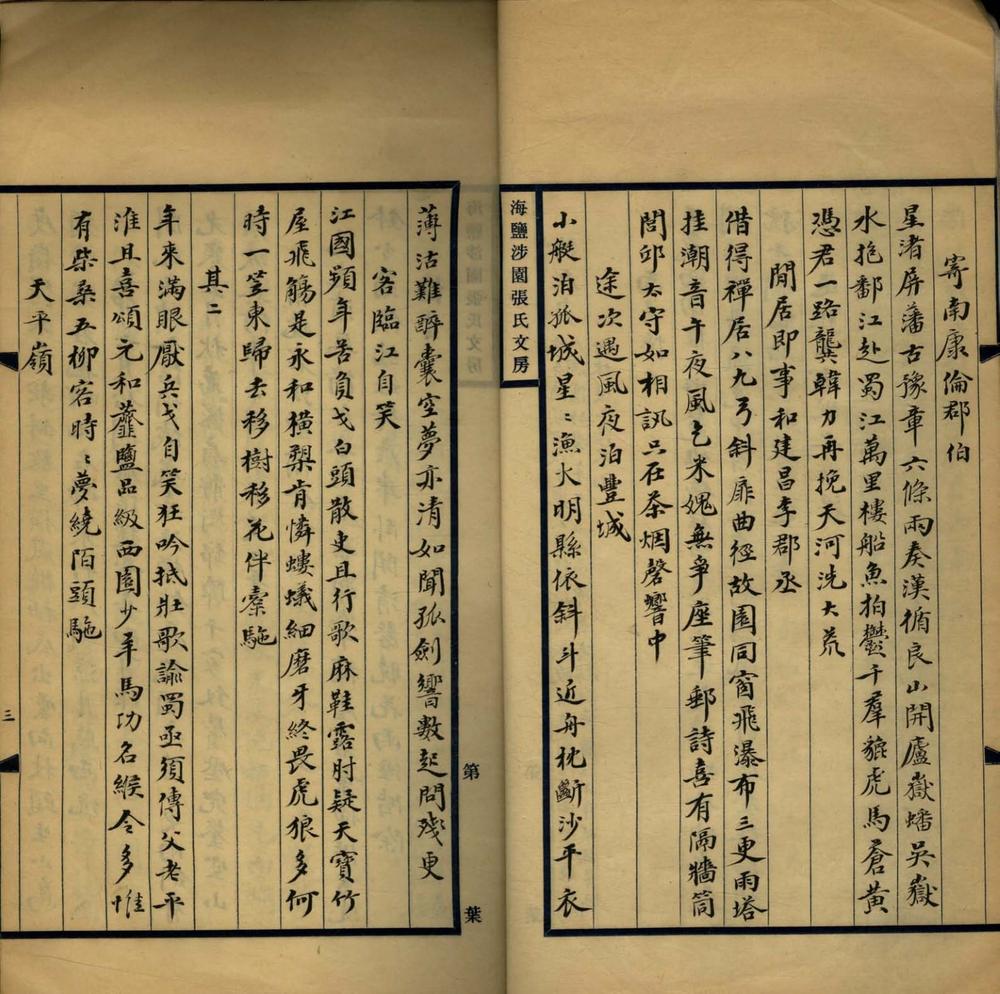 寄南康倫郡伯
星渚屏藩古豫章六條雨奏漢循良山開廬嶽蟠吳嶽
水抱鄱江赴蜀江萬里樓船魚拍鬱千羣貔虎馬蒼黃
憑君一路龔韓力再挽天河洗大荒
閒居即事和建昌李郡丞
借得禪居八九弓斜扉曲徑故園同窗飛瀑布三更雨塔
挂潮音午夜風乞米媿無爭座筆郵詩喜有隔牆筒
問邱太守如相訊只在茶烟磬響中
途次遇風夜泊豐城
小艇泊孤城星〻漁火明縣依斜斗近舟枕斷沙平衣
海鹽涉園張氏文房
薄沽難醉囊空夢亦清如聞孤劍響數起問殘更
客臨江自笑
江國頻年苦負戈白頭散吏且行歌麻鞋露肘疑天寶竹
屋飛觴是永和橫槊肯憐螻蟻細磨牙終畏虎狼多何
時一笠東歸去移樹移花伴橐駞
其二
年來滿眼厭兵戈自笑狂吟抵壯歌諭蜀亟須傳父老平
淮且喜頌元和虀鹽品級西園少羊馬功名緱令多惟
有柴桑五柳客時〻夢繞陌頭駞
天平嶺
第
葉
三